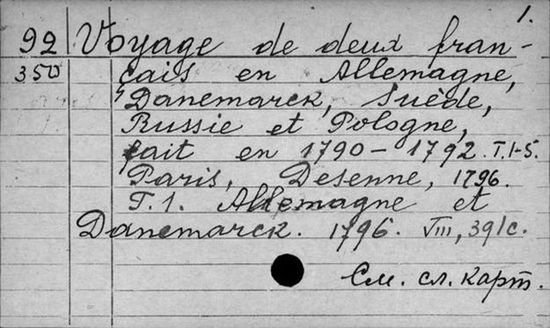 1.
92 Voyage de deux fran-
350 çais en Allemagne,
Danemarck, Suède,
Russie et Pologne,
fait en 1790-1792. T.1-5.
Paris, Desenne, 1796.
T.1. Allemagne et
Danemarck. 1796. VIII, 391c.
См. сл. карт.